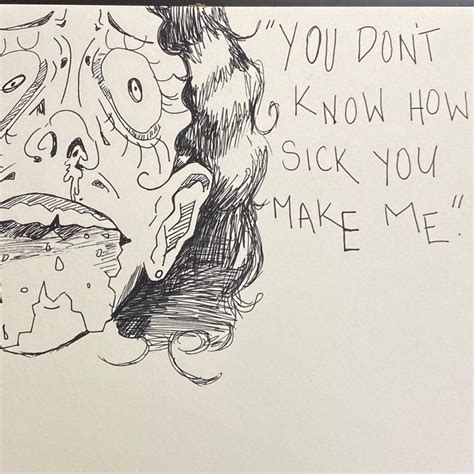 "YOU DON'T
KNOW HOW
SICK YOU
MAKE ME."